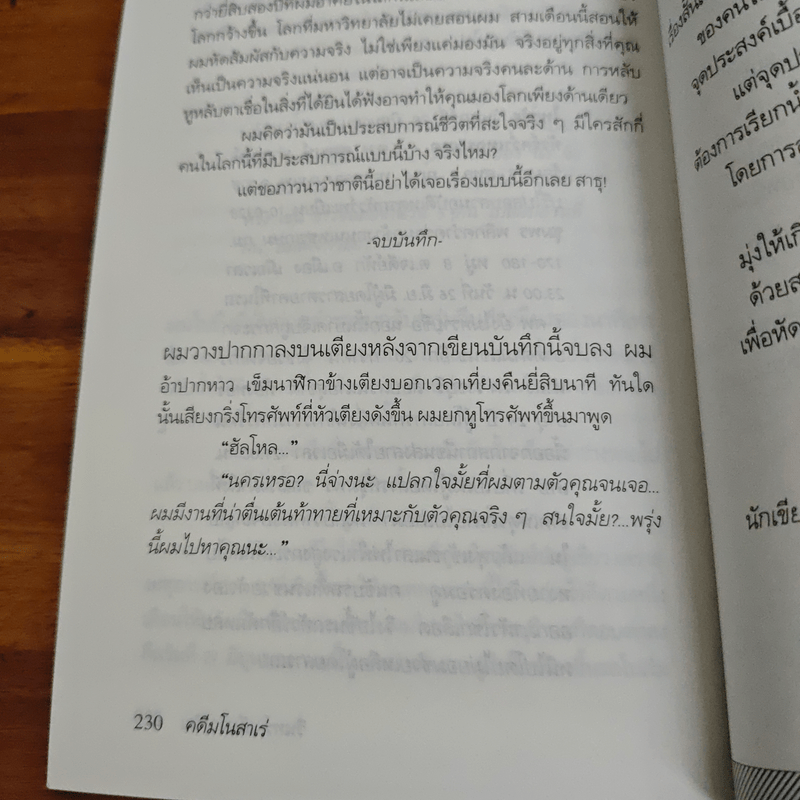 โลกกว้างขึ้น โลกที่มหาวิทยาลัยไม่เคยสอนผม สามเดือนนี้สอนให้
ผมหัดสัมผัสกับความจริง ไม่ใช่เพียงแค่มองมัน จริงอยู่ทุกสิ่งที่คุณ
เห็นเป็นความจริงแน่นอน แต่อาจเป็นความจริงคนละด้าน การหลับ
หูหลับตาเชื่อในสิ่งที่ได้ยินได้ฟังอาจทำให้คุณมองโลกเพียงด้านเดียว
ผมคิดว่ามันเป็นประสบการณ์ชีวิตที่สะใจจริง ๆ มีใครสักกี่
คนในโลกนี้ที่มีประสบการณ์แบบนี้บ้าง จริงไหม?
แต่ขอภาวนาว่าชาตินี้อย่าได้เจอเรื่องแบบนี้อีกเลย สาธุ!
-จบบันทึก-
ผมวางปากกาลงบนเตียงหลังจากเขียนบันทึกนี้จบลง ผม
อ้าปากหาว เข็มนาฬิกาข้างเตียงบอกเวลาเที่ยงคืนยี่สิบนาที ทันใด
นั้นเสียงกริ่งโทรศัพท์ที่หัวเตียงดังขึ้น ผมยกหูโทรศัพท์ขึ้นมาพูด
“ฮัลโหล...”
“นครเหรอ? นี่จ่างนะ แปลกใจมั้ยที่ผมตามตัวคุณจนเจอ...
ผมมีงานที่น่าตื่นเต้นท้าทายที่เหมาะกับตัวคุณจริง ๆ สนใจมั้ย?...พรุ่ง
นี้ผมไปหาคุณนะ...”
230 คดีมโนสาเร่
ของคน
จุดประสงค์
ต้องการเรียกน้ำ
โดยการ
มุ่งให้
ด้วย
เพื่อหัด
นักเขีย